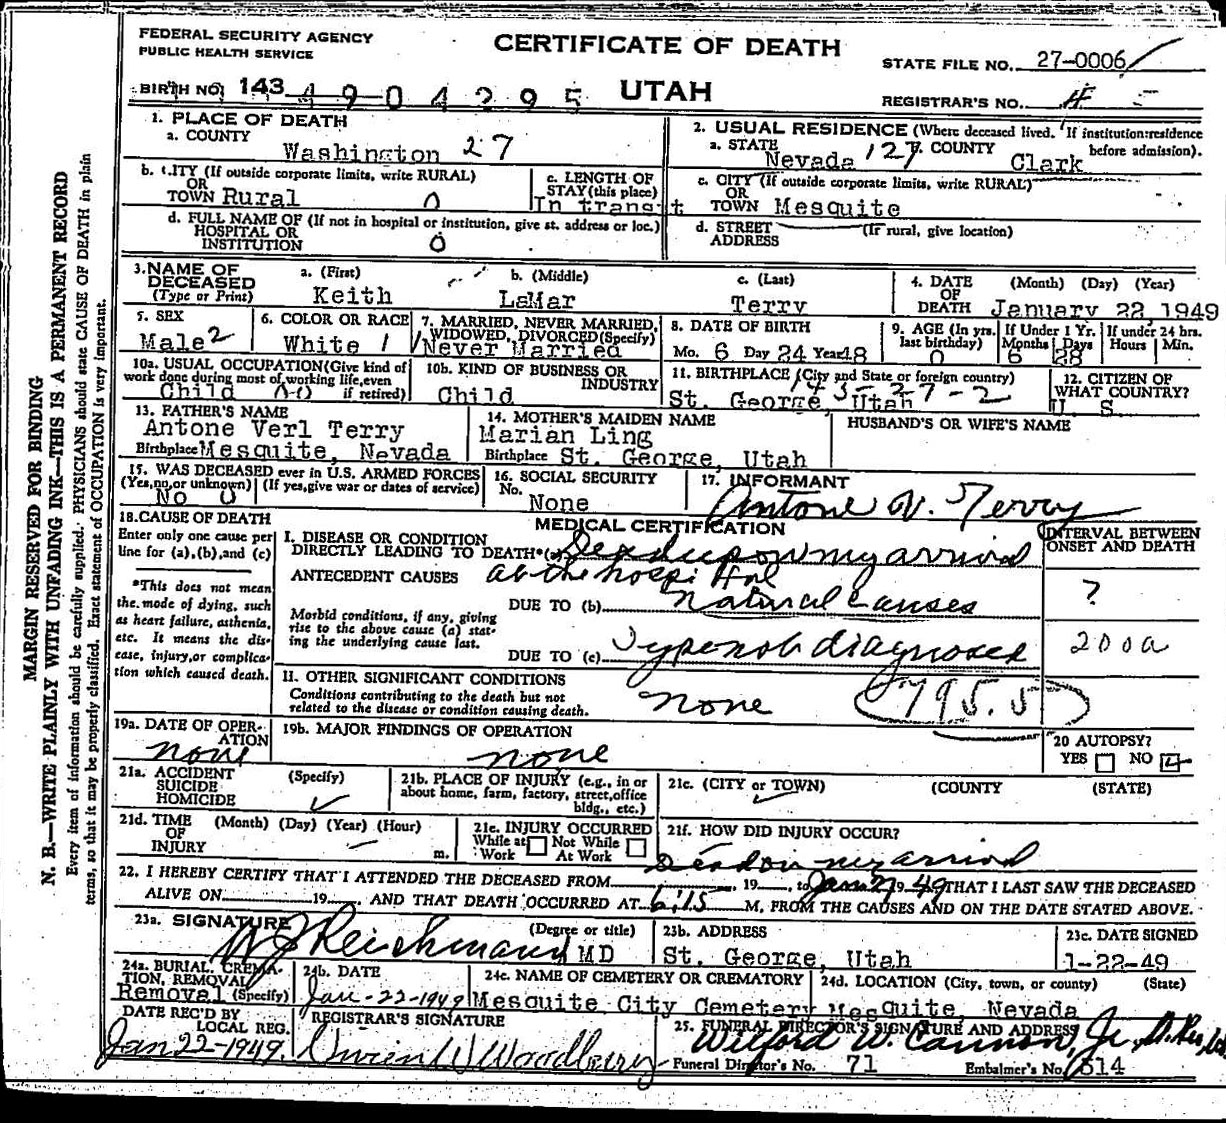 FEDERAL SECURITY AGENCY
PUBLIC HEALTH SERVICE
CERTIFICATE OF DEATH
STATE FILE NO. 27-0006
BIRTH NO. 143 4904295
UTAH
REGISTRAR'S NO. 4
MARGIN RESERVED FOR BINDING
N. B.—WRITE PLAINLY WITH UNFADING INK—THIS IS A PERMANENT RECORD
Every item of information should be carefully supplied. PHYSICIANS should state CAUSE OF DEATH in plain
terms, so that it may be properly classified. Exact statement of OCCUPATION is very important.
1. PLACE OF DEATH
a. COUNTY
Washington 27
2. USUAL RESIDENCE (Where deceased lived. If institution:residence
before admission).
a. STATE Nevada 127 COUNTY Clark
b. CITY (If outside corporate limits, write RURAL)
OR
TOWN Rural 0
c. LENGTH OF
STAY (this place)
In transit
c. CITY (If outside corporate limits, write RURAL)
OR
TOWN Mesquite
d. FULL NAME OF (If not in hospital or institution, give st. address or loc.)
HOSPITAL OR
INSTITUTION 0
d. STREET (If rural, give location)
ADDRESS
3. NAME OF
DECEASED
(Type or Print)
a. (First) b. (Middle) c. (Last)
Keith LaMar Terry
4. DATE (Month) (Day) (Year)
OF
DEATH January 22, 1949
5. SEX
Male 2
6. COLOR OR RACE
White 1
7. MARRIED, NEVER MARRIED,
WIDOWED, DIVORCED(Specify)
Never Married
8. DATE OF BIRTH
Mo. 6 Day 24 Year 48
9. AGE (In yrs.
last birthday)
0
If Under 1 Yr.
Months Days
6 28
If under 24 hrs.
Hours Min.
10a. USUAL OCCUPATION(Give kind of
work done during most of working life, even
if retired)
Child
10b. KIND OF BUSINESS OR
INDUSTRY
Child
11. BIRTHPLACE (City and State or foreign country)
St. George, Utah
12. CITIZEN OF
WHAT COUNTRY?
U. S.
13. FATHER'S NAME
Antone Verl Terry
Birthplace Mesquite, Nevada
14. MOTHER'S MAIDEN NAME
Marian Ling
Birthplace St. George, Utah
HUSBAND'S OR WIFE'S NAME
15. WAS DECEASED ever in U.S. ARMED FORCES
(Yes,no,or unknown) (If yes,give war or dates of service)
No 0
16. SOCIAL SECURITY
No.
None
17. INFORMANT
Antone V. Terry
18.CAUSE OF DEATH
Enter only one cause per
line for (a),(b),and (c)
*This does not mean
the mode of dying, such
as heart failure, asthenia,
etc. It means the dis-
ease, injury,or complica-
tion which caused death.
MEDICAL CERTIFICATION
I. DISEASE OR CONDITION
DIRECTLY LEADING TO DEATH*(a) Dead upon my arrival
at the hospital
ANTECEDENT CAUSES
DUE TO (b) Natural Causes
Morbid conditions, if any, giving
rise to the above cause (a) stat-
ing the underlying cause last.
DUE TO (c) Type not diagnosed
INTERVAL BETWEEN
ONSET AND DEATH
?
200a
II. OTHER SIGNIFICANT CONDITIONS
Conditions contributing to the death but not
related to the disease or condition causing death.
none
795.5
19a. DATE OF OPER-
ATION
none
19b. MAJOR FINDINGS OF OPERATION
none
20 AUTOPSY?
YES NO
21a. ACCIDENT
SUICIDE
HOMICIDE
(Specify)
21b. PLACE OF INJURY (e.g., in or
about home, farm, factory, street,office
bldg., etc.)
21c. (CITY or TOWN) (COUNTY) (STATE)
21d. TIME (Month) (Day) (Year) (Hour)
OF
INJURY m.
21e. INJURY OCCURRED
While at Work Not While At Work
21f. HOW DID INJURY OCCUR?
Dead on my arrival
22. I HEREBY CERTIFY THAT I ATTENDED THE DECEASED FROM 19 , to Jan 1949 THAT I LAST SAW THE DECEASED
ALIVE ON 19 . AND THAT DEATH OCCURRED AT 6:15 M, FROM THE CAUSES AND ON THE DATE STATED ABOVE.
23a. SIGNATURE (Degree or title)
W J Reichmann MD
23b. ADDRESS
St. George, Utah
23c. DATE SIGNED
1-22-49
24a. BURIAL, CREMA-
TION, REMOVAL
(Specify)
Removal
24b. DATE
Jan-22-1949
24c. NAME OF CEMETERY OR CREMATORY
Mesquite City Cemetery
24d. LOCATION (City, town, or county) (State)
Mesquite, Nevada
DATE REC'D BY
LOCAL REG.
Jan 22-1949
REGISTRAR'S SIGNATURE
W Woodbury
25. FUNERAL DIRECTOR'S SIGNATURE AND ADDRESS
Wilford W. Cannon, Jr.
Funeral Director's No. 71
Embalmer's No. 614